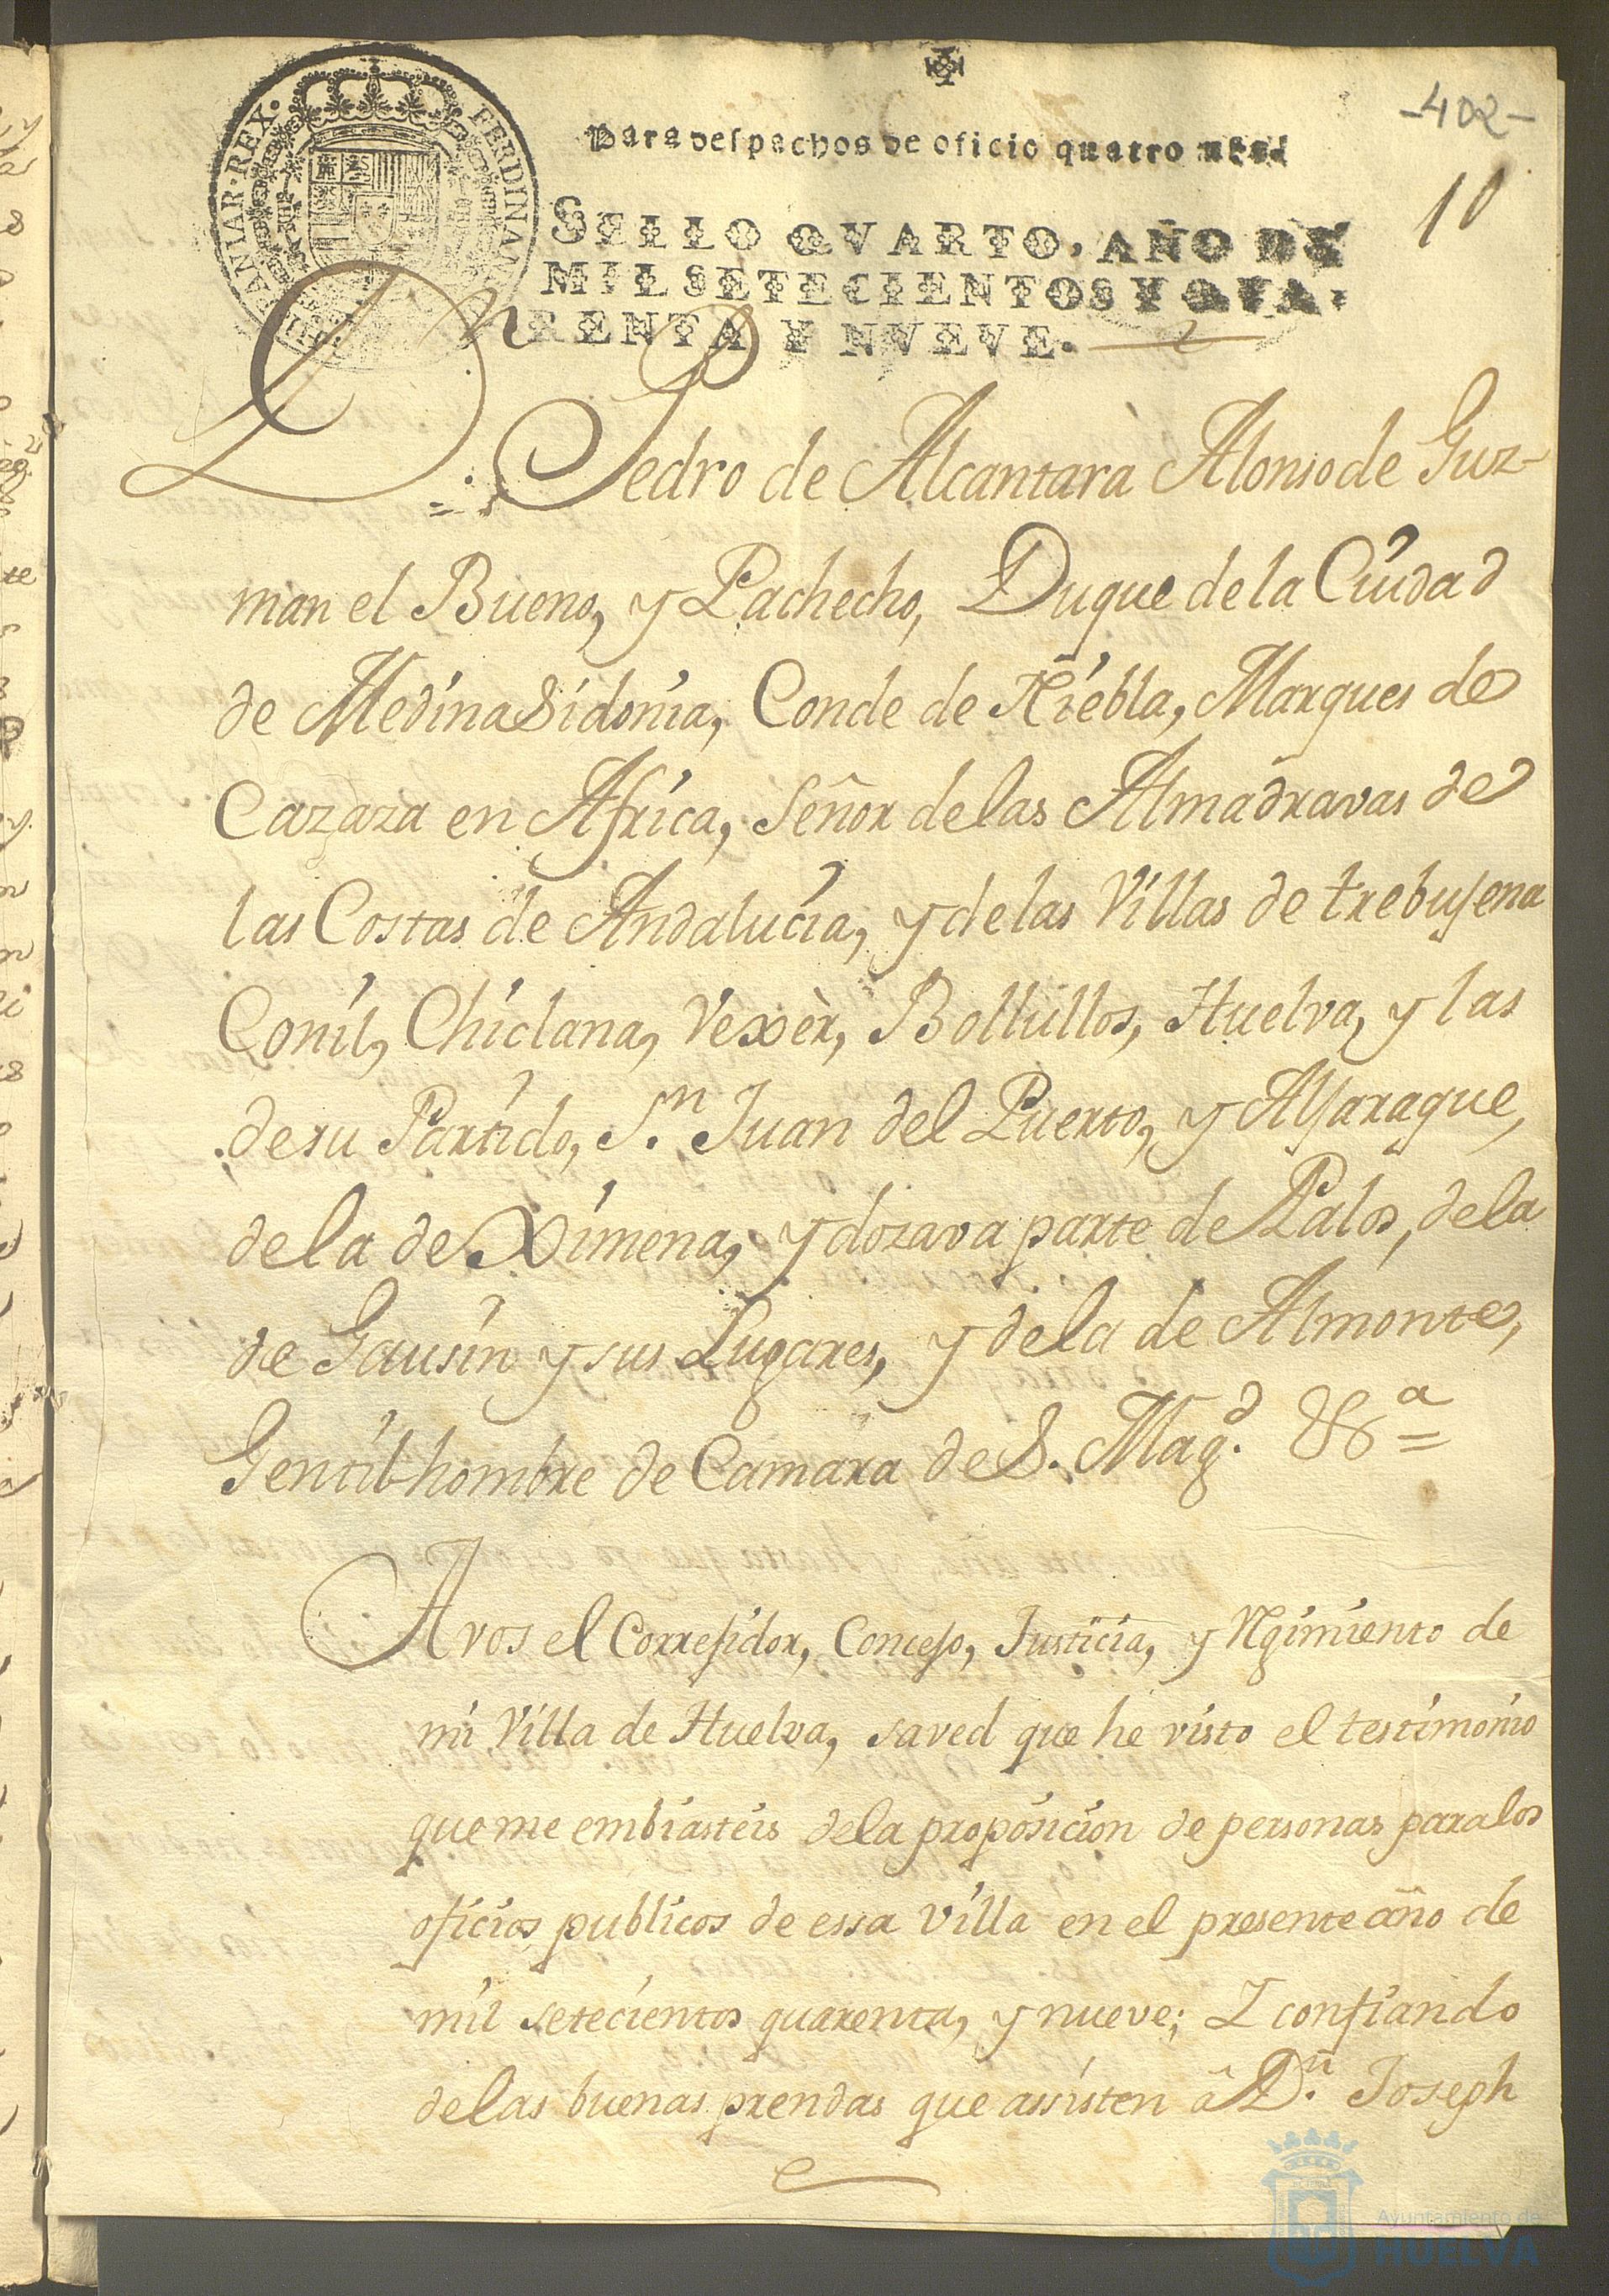 -402-
Para despachos de oficio quatro mrs.
10
SELLO QVARTO, AÑO DE
MIL SETECIENTOS Y QVA-
RENTA Y NVEVE.
FERDINAN
HISPANIAR·REX·
Dn Pedro de Alcantara Alonso de Guz-
man el Bueno, y Pachecho, Duque de la Ciudad
de Medina Sidonia, Conde de Niebla, Marques de
Cazaza en Africa, Señor de las Almadravas de
las Costas de Andalucia, y de las Villas de trebujena
Conil, Chiclana, Vexèr, Bollullos, Huelva, y las
de su Partido, Sn. Juan del Puerto, y Aljaraque,
de la de Ximena, y dozava parte de Palos, de la
de Gausin y sus Lugares, y de la de Almonte,
Gentil-hombre de Camara de S. Magd. &a=
A vos el Correjidor, Concejo, Justicia, y Rgimiento de
mi Villa de Huelva, saved que he visto el testimonio
que me embiasteis de la proposicion de personas para los
oficios publicos de essa villa en el presente año de
mil setecientos quarenta, y nueve; I confiando
de las buenas prendas que assisten â Dn. Joseph
Ayuntamiento de
HUELVA